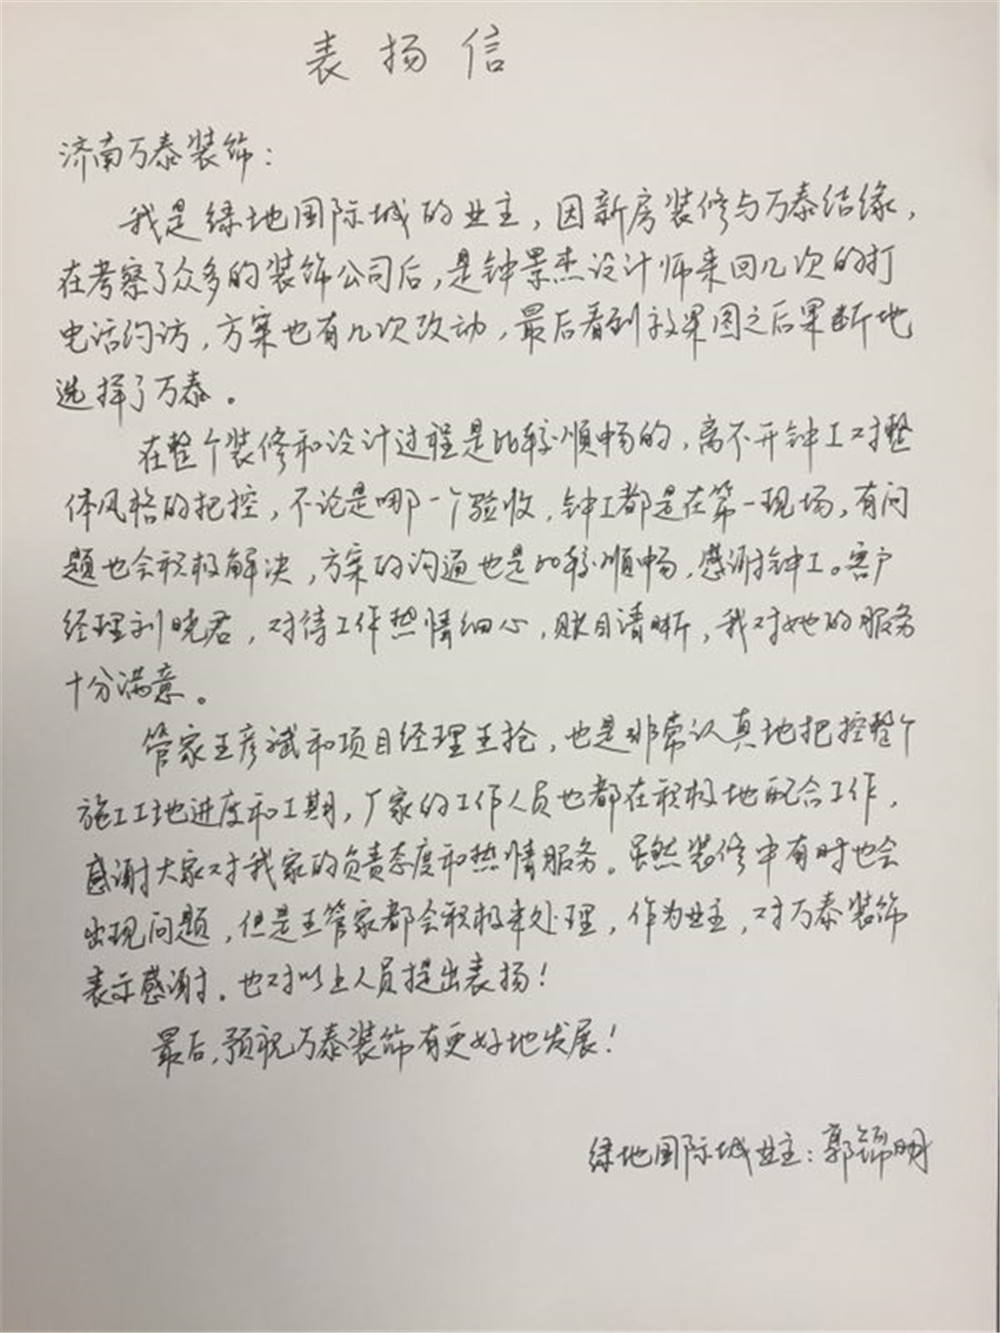 表扬信
济南万泰装饰：
我是绿地国际城的业主，因新房装修与万泰结缘，
在考察了众多的装饰公司后，是钟景杰设计师来回几次的打
电话约访，方案也有几次改动，最后看到效果图之后果断地
选择了万泰。
在整个装修和设计过程是比较顺畅的，离不开钟工对整
体风格的把控，不论是哪一个验收，钟工都是在第一现场，有问
题也会积极解决，方案的沟通也是比较顺畅，感谢钟工。客户
经理刘晓君，对待工作热情细心，账目清晰，我对她的服务
十分满意。
管家王彦斌和项目经理王抢，也是非常认真地把控整个
施工工地进度和工期，厂家的工作人员也都在积极地配合工作，
感谢大家对我家的负责态度和热情服务。虽然装修中有时也会
出现问题，但是王管家都会积极来处理，作为业主，对万泰装饰
表示感谢，也对以上人员提出表扬！
最后，预祝万泰装饰有更好地发展！
绿地国际城业主：郭锦明